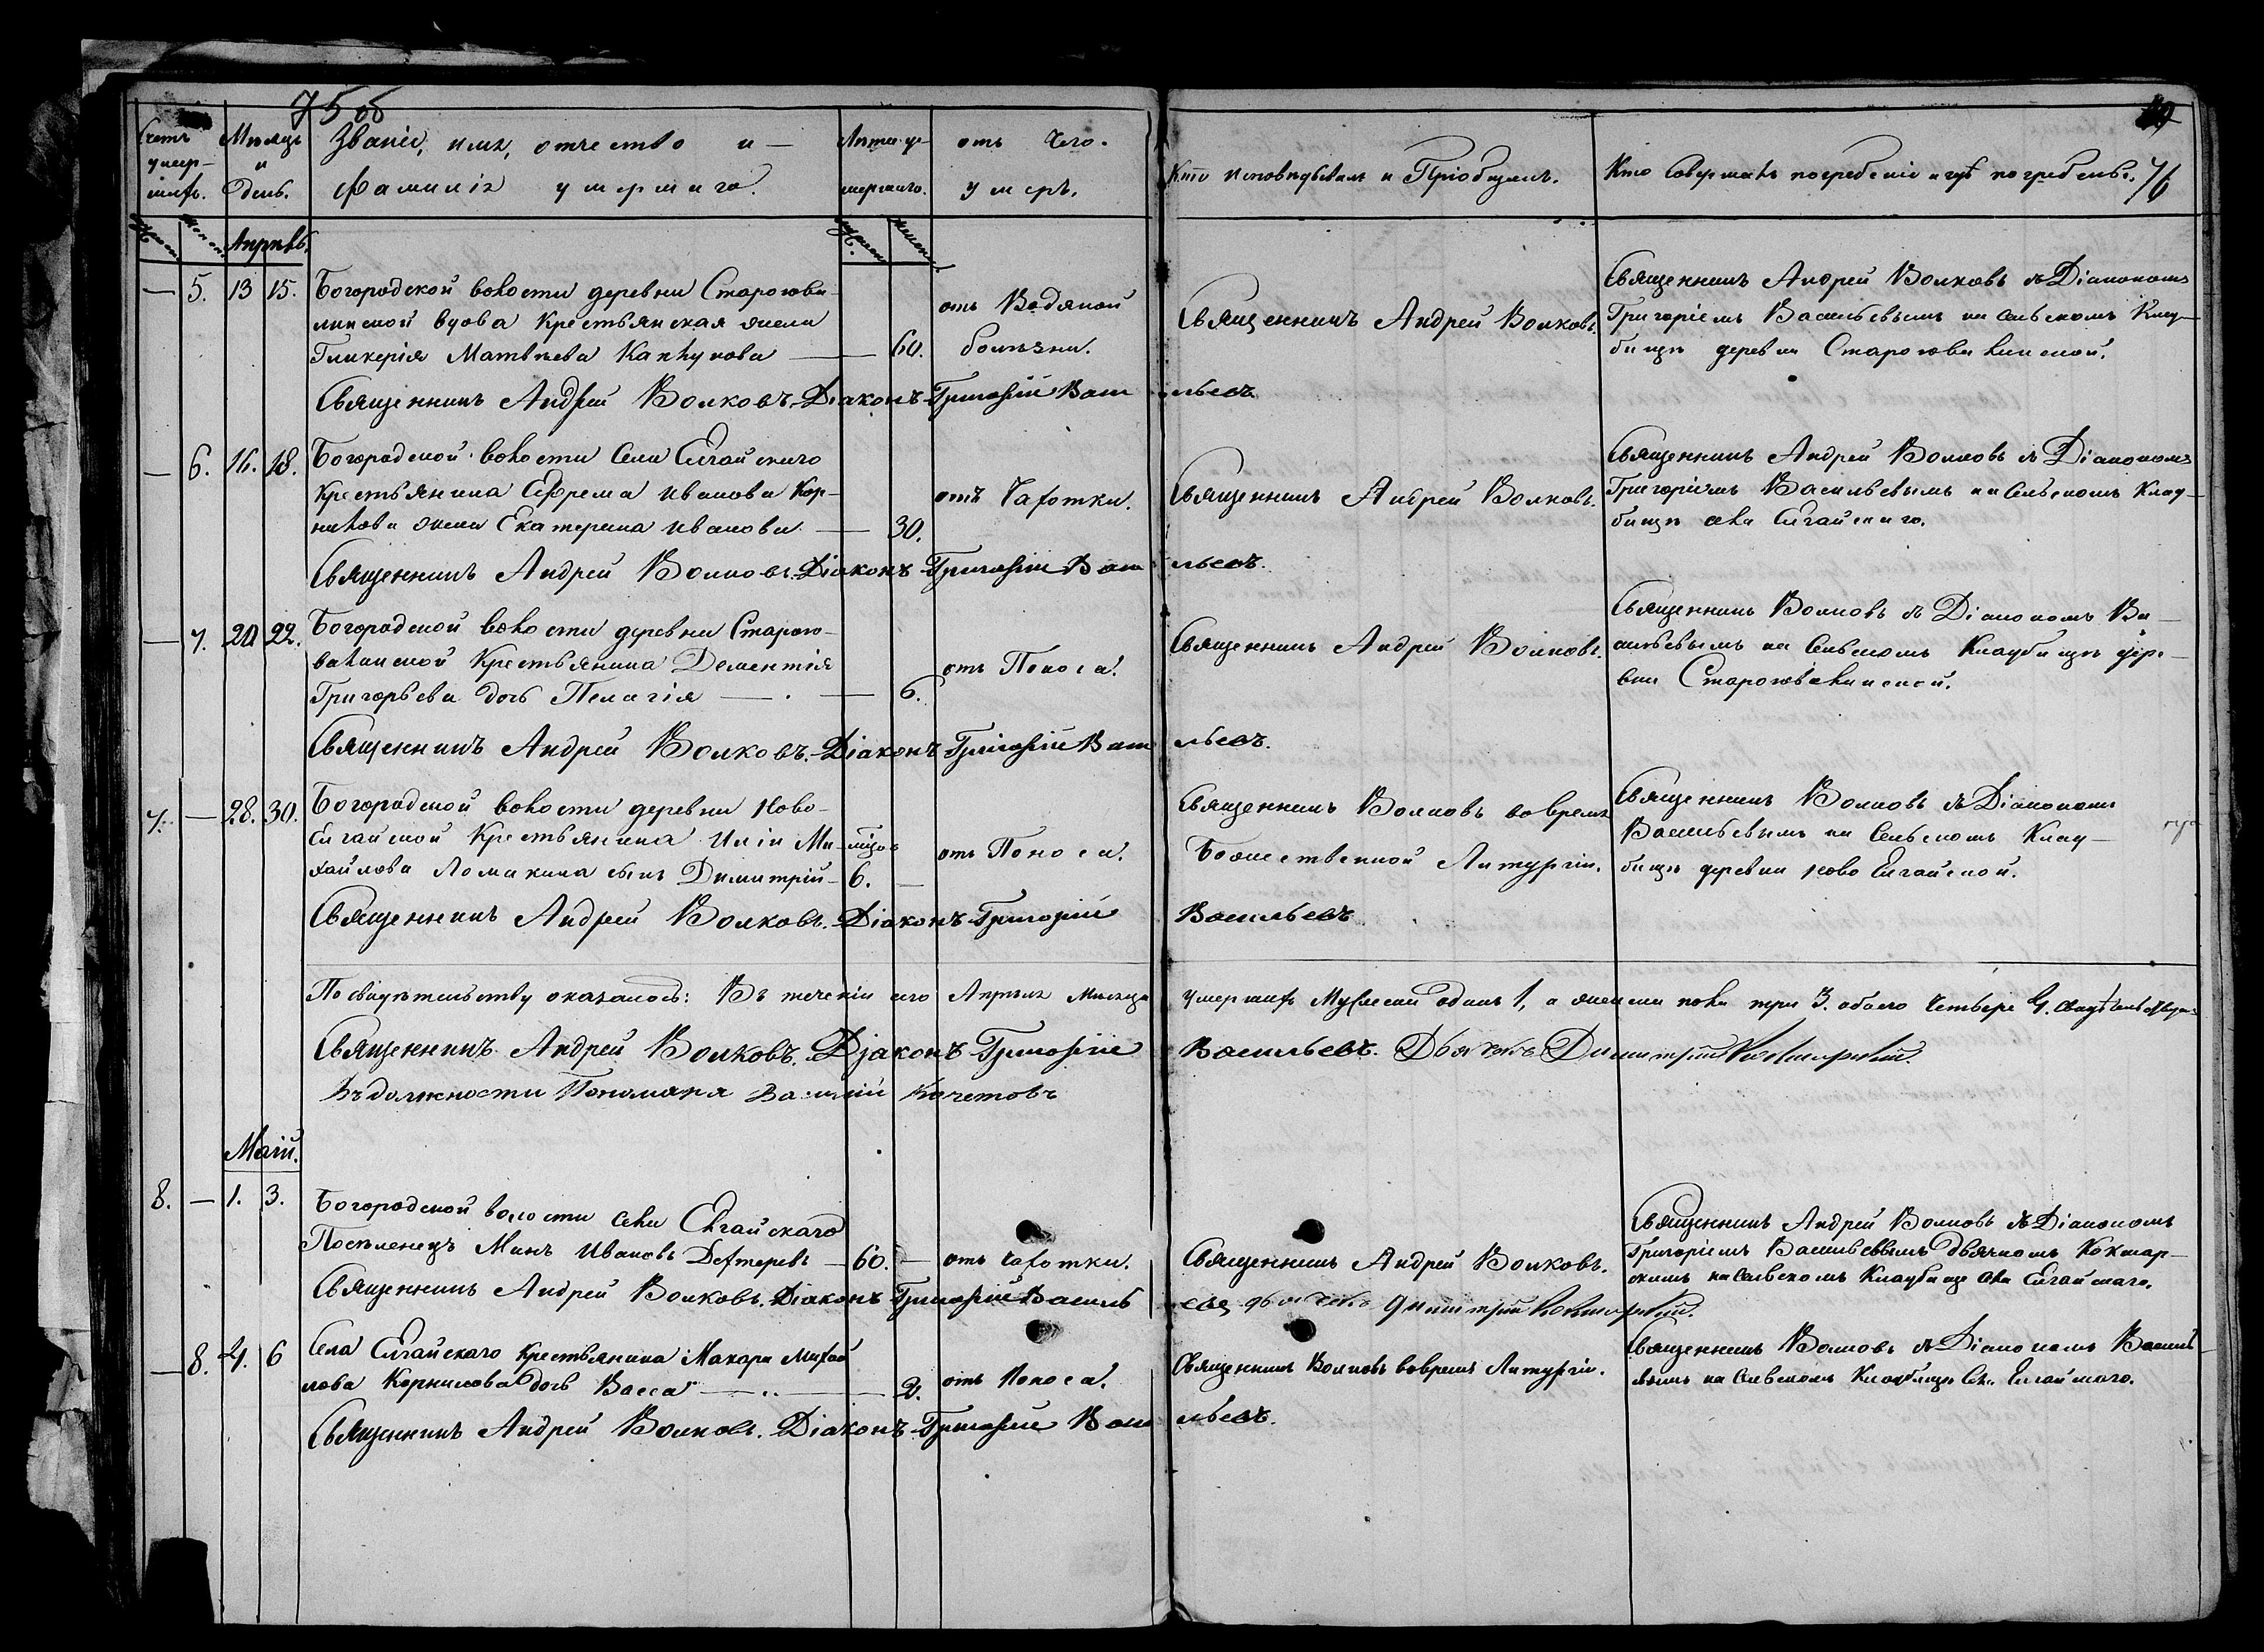 75 об
76
Счетъ умер- шихъ.
Мѣсяцъ и день.
Званіе, имя, отчество и фамилія умершаго.
Лѣта уе- мершаго.
отъ Чего умеръ.
Кто исповѣдывалъ и Пріобщалъ.
Кто Совершалъ погребеніе и гдѣ погребены.
Апрѣль.
— 5. 13 15. Богородской волости деревни Староюва-
линской вдова Крестьянская жена
Гликерія Матвѣева — 60.
отъ Водяной
болѣзни.
Священникъ Андрей Волковъ.
Священникъ Андрей Волковъ съ Діакономъ
Григоріемъ Васильевымъ на сельскомъ Клад-
бищѣ деревни Староювалинской.
Священникъ Андрей Волковъ. Діаконъ Григорій Васильевъ
— 6. 16. 18. Богородской волости Села Елгайскаго
Крестьянина Ефрема Иванова Кор-
нилова жена Екатерина Иванова — 30.
отъ Чахотки.
Священникъ Андрей Волковъ.
Священникъ Андрей Волковъ съ Діакономъ
Григоріемъ Васильевымъ на Сельскомъ Клад-
бищѣ села Елгайскаго.
Священникъ Андрей Волковъ. Діаконъ Григорій Васильевъ.
— 7. 20 22. Богородской волости деревни Старою-
валинской Крестьянина Дементія
Григорьева дочь Пелагія — 6.
отъ Поноса.
Священникъ Андрей Волковъ.
Священникъ Волковъ съ Діакономъ Ва-
сильевымъ на Сельскомъ Кладбищѣ дере-
вни Староювалинской.
Священникъ Андрей Волковъ. Діаконъ Григорій Васильевъ.
7. — 28. 30. Богородской волости деревни Ново-
Елгайской Крестьянина Иліи Ми-
хайлова Ломакина сынъ Димитрій — 6. —
отъ Поноса.
Священникъ Волковъ во время
Божественной Литургіи.
Священникъ Волковъ съ Діакономъ
Васильевымъ на Сельскомъ Клад-
бищѣ деревни Ново Елгайской.
Священникъ Андрей Волковъ. Діаконъ Григорій Васильевъ
По свидѣтельству оказалось: Въ теченіи сего Апрѣля Мѣсяца умершихъ Мужеска одинъ 1, а женска пола три 3. обоего Четыре 4.
Священникъ Андрей Волковъ. Діаконъ Григорій Васильевъ. Дьячекъ Димитрій
Въ должности Пономаря Василій Кочетовъ
Маій.
8. — 1. 3. Богородской волости села Елгайскаго
Поселенецъ Минъ Ивановъ — 60. —
отъ Чахотки.
Священникъ Андрей Волковъ.
Священникъ Андрей Волковъ съ Діакономъ
Григоріемъ Васильевымъ дьячкомъ Кокшар-
скимъ на Сельскомъ Кладбище села Елгайскаго.
Священникъ Андрей Волковъ. Діаконъ Григорій Васильевъ дьячекъ Димитрій Кокшарскій.
— 8. 4. 6 Села Елгайскаго Крестьянина Макара Михай-
лова Корнилова дочь Васса — 2.
отъ Поноса.
Священникъ Волковъ во время Литургіи.
Священникъ Волковъ съ Діакономъ Василь-
евымъ на Сельскомъ Кладбищѣ Села Елгайскаго.
Священникъ Андрей Волковъ. Діаконъ Григорій Васильевъ.